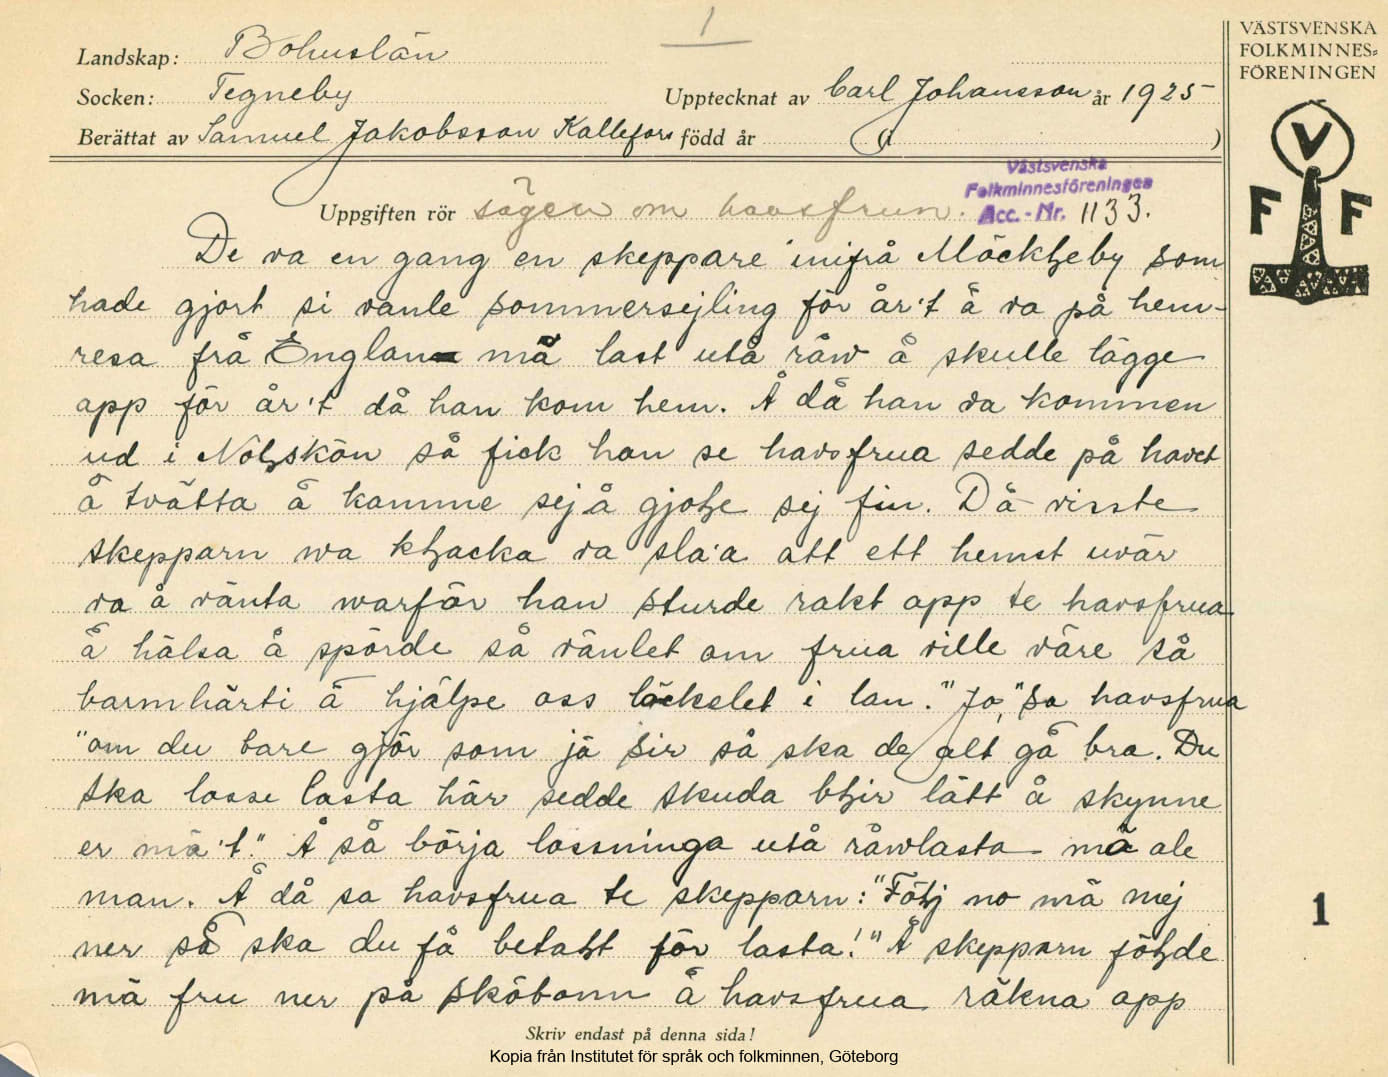 1
VÄSTSVENSKA
FOLKMINNES-
FÖRENINGEN
Landskap: Bohuslän
Socken: Tegneby Upptecknat av Carl Johansson år 1925
Berättat av Samuel Jakobsson Kallefors född år (i )
Västsvenska
Folkminnesföreningen
Acc.-Nr. 1133.
Uppgiften rör sägen om havsfrun.
V
F F
De va en gang en skeppare inifrå Möckleby som
hade gjort si vanle sommersejling för år't å va på hem-
resa frå Englan mä last utå råw å skulle lägge
app för år't då han kom hem. Å då han va kommen
ud i Nolskön så fick han se havsfrua sedde på havet
å tvätta å kamme sej å gjole sej fin. Då visste
skepparn wa klacka va sla'a att ett hemst uvär
va å vänta warför han sturde rakt app te havsfrua
å hälsa å spörde så vänlet om frua ville väre så
barmhärti å hjälpe oss löckelet i lan." "Jo," sa havsfrua
"om du bare gjör som jä sir så ska de alt gå bra. Du
ska losse lasta här sedde skuda blir lätt å skynne
er mä't." Å så börja lossninga utå råwlasta mä ale
man. Å då sa havsfrua te skepparn: "Följ no mä mej
ner så ska du få betalt för lasta!" Å skepparn földe
mä fru ner på sköbonn å havsfrua räkna app
Skriv endast på denna sida!
Kopia från Institutet för språk och folkminnen, Göteborg
1